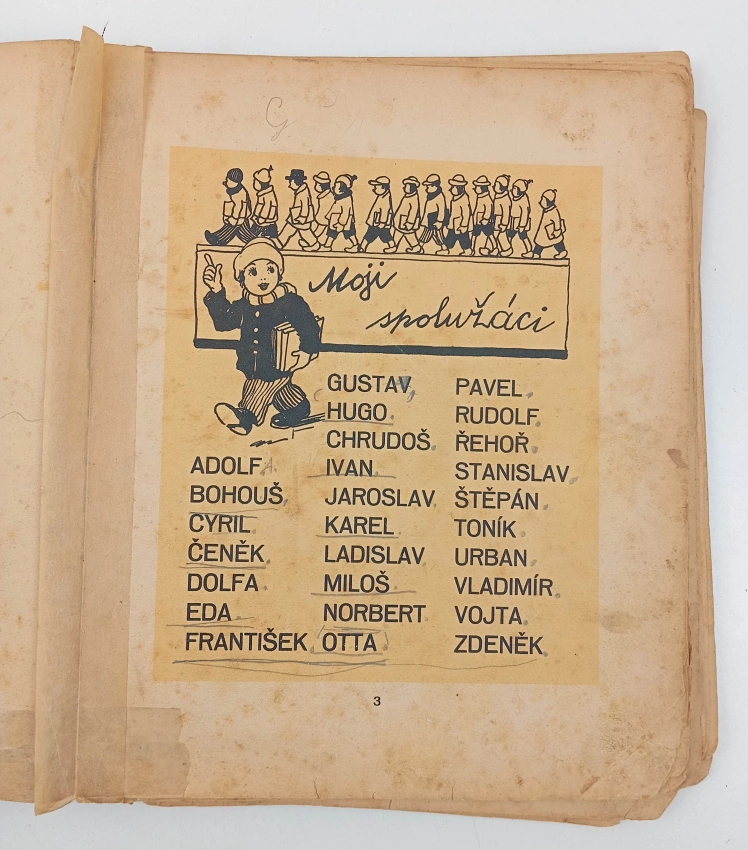 G
Moji
spolužáci
ADOLF
BOHOUŠ
CYRIL
ČENĚK
DOLFA
EDA
FRANTIŠEK
GUSTAV
HUGO
CHRUDOŠ
IVAN
JAROSLAV
KAREL
LADISLAV
MILOŠ
NORBERT
OTTA
PAVEL
RUDOLF
ŘEHOŘ
STANISLAV
ŠTĚPÁN
TONÍK
URBAN
VLADIMÍR
VOJTA
ZDENĚK
3